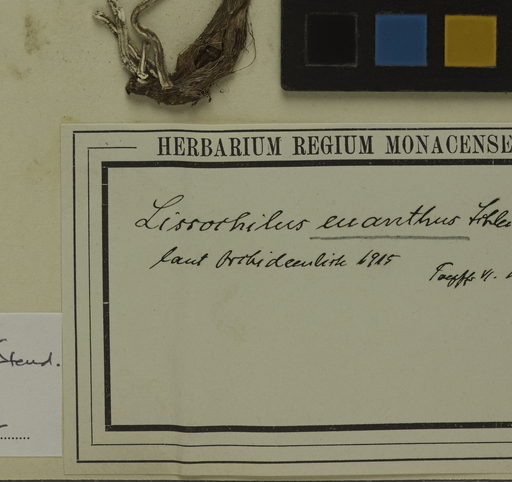 HERBARIUM REGIUM MONACENSE
Lissochilus euanthus Schle
laut Orchideenlist 1915
Steud.